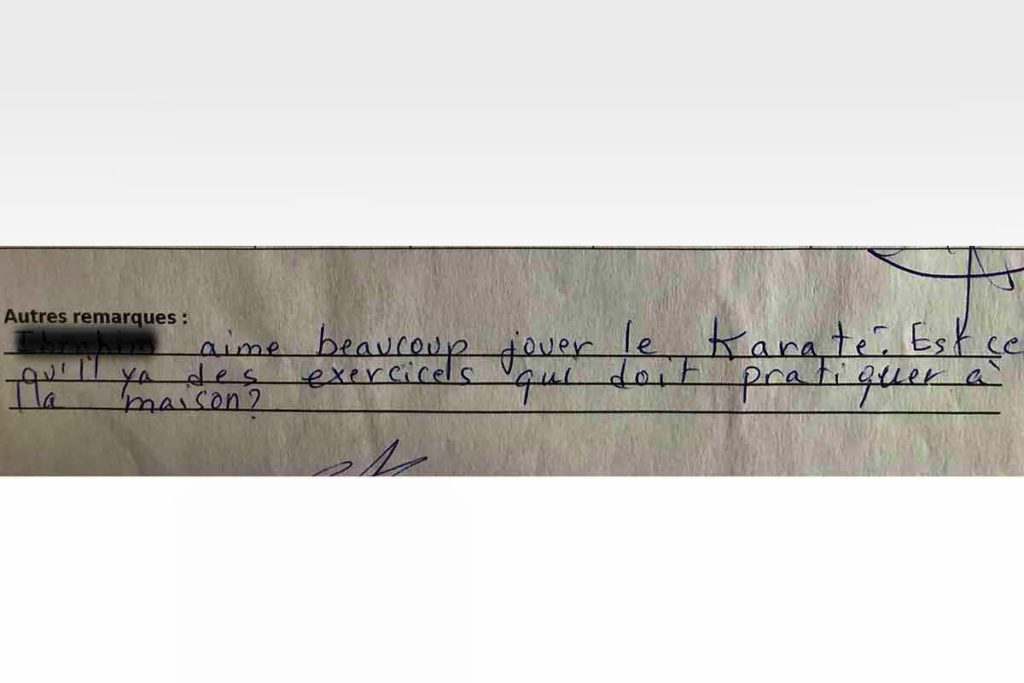 Autres remarques :
aime beaucoup jouer le Karaté. Est ce
qu'il ya des exercicels qui doit pratiquer à
la maison?